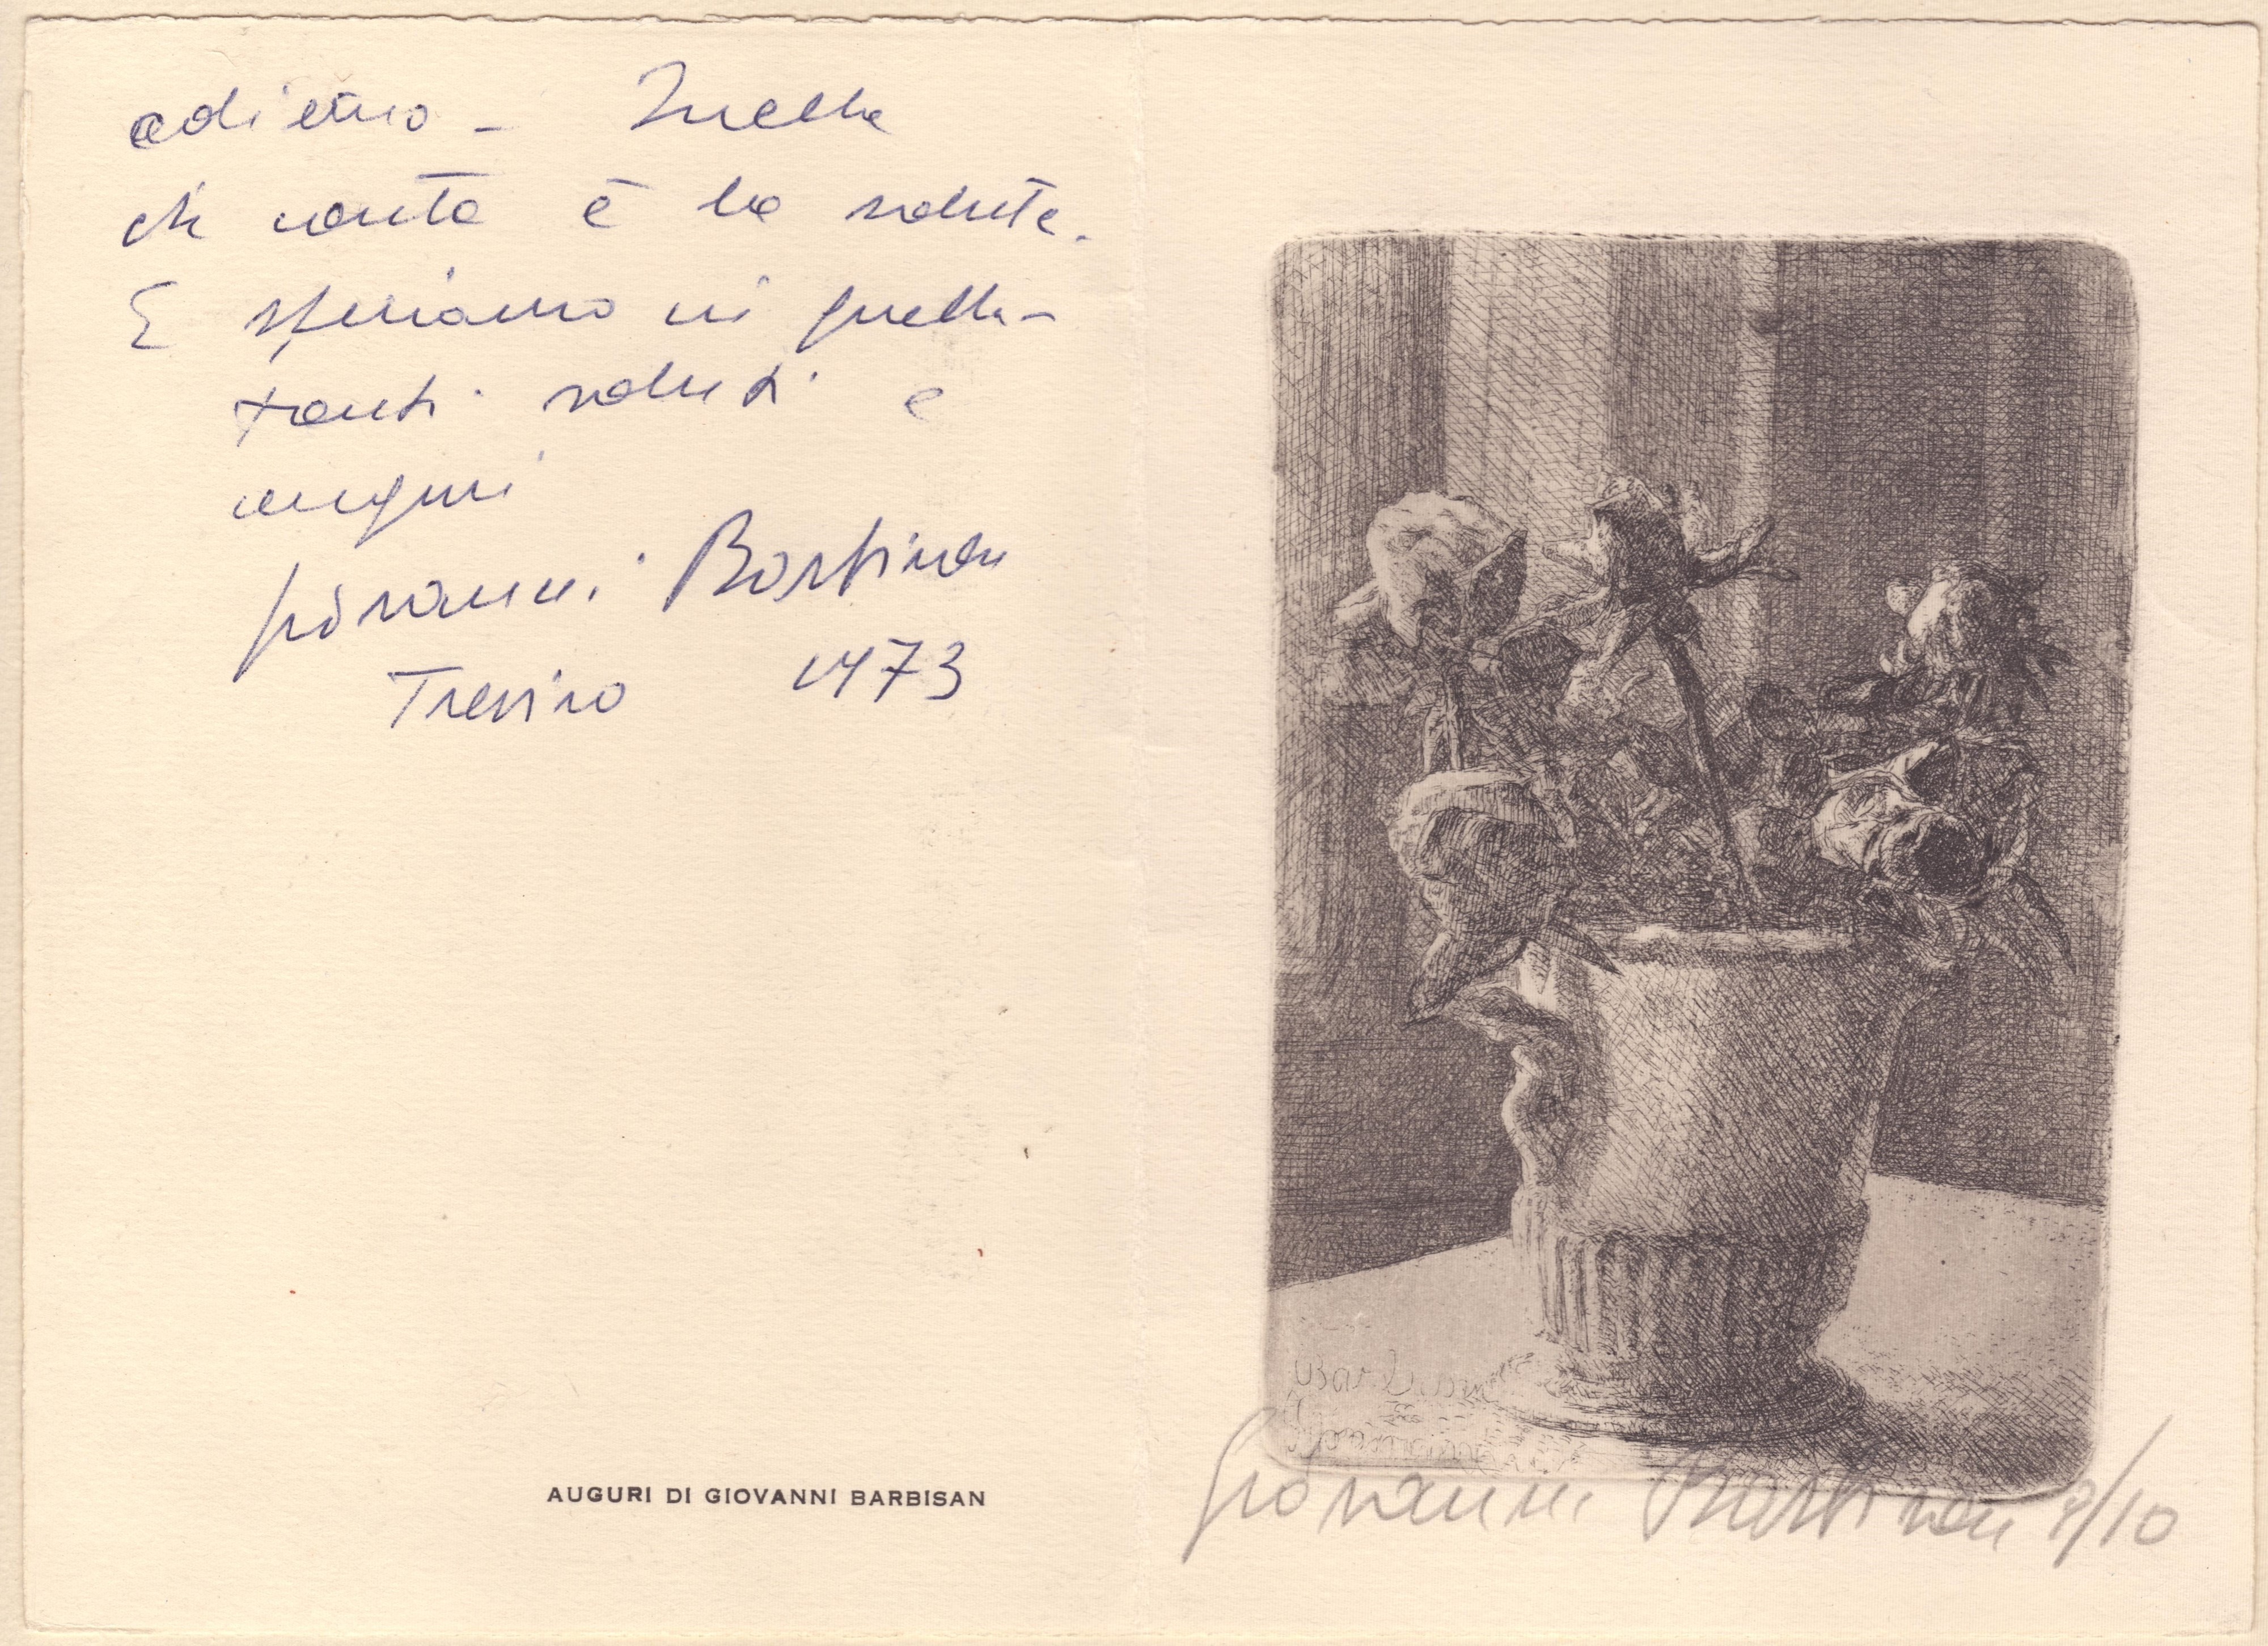 odierno - Quella
che conta è la salute.
E speriamo in quella -
tanti saluti e
auguri
Giovanni Barbisan
Treviso 1973
AUGURI DI GIOVANNI BARBISAN
Barbisan
Giovanni
Giovanni Barbisan /10